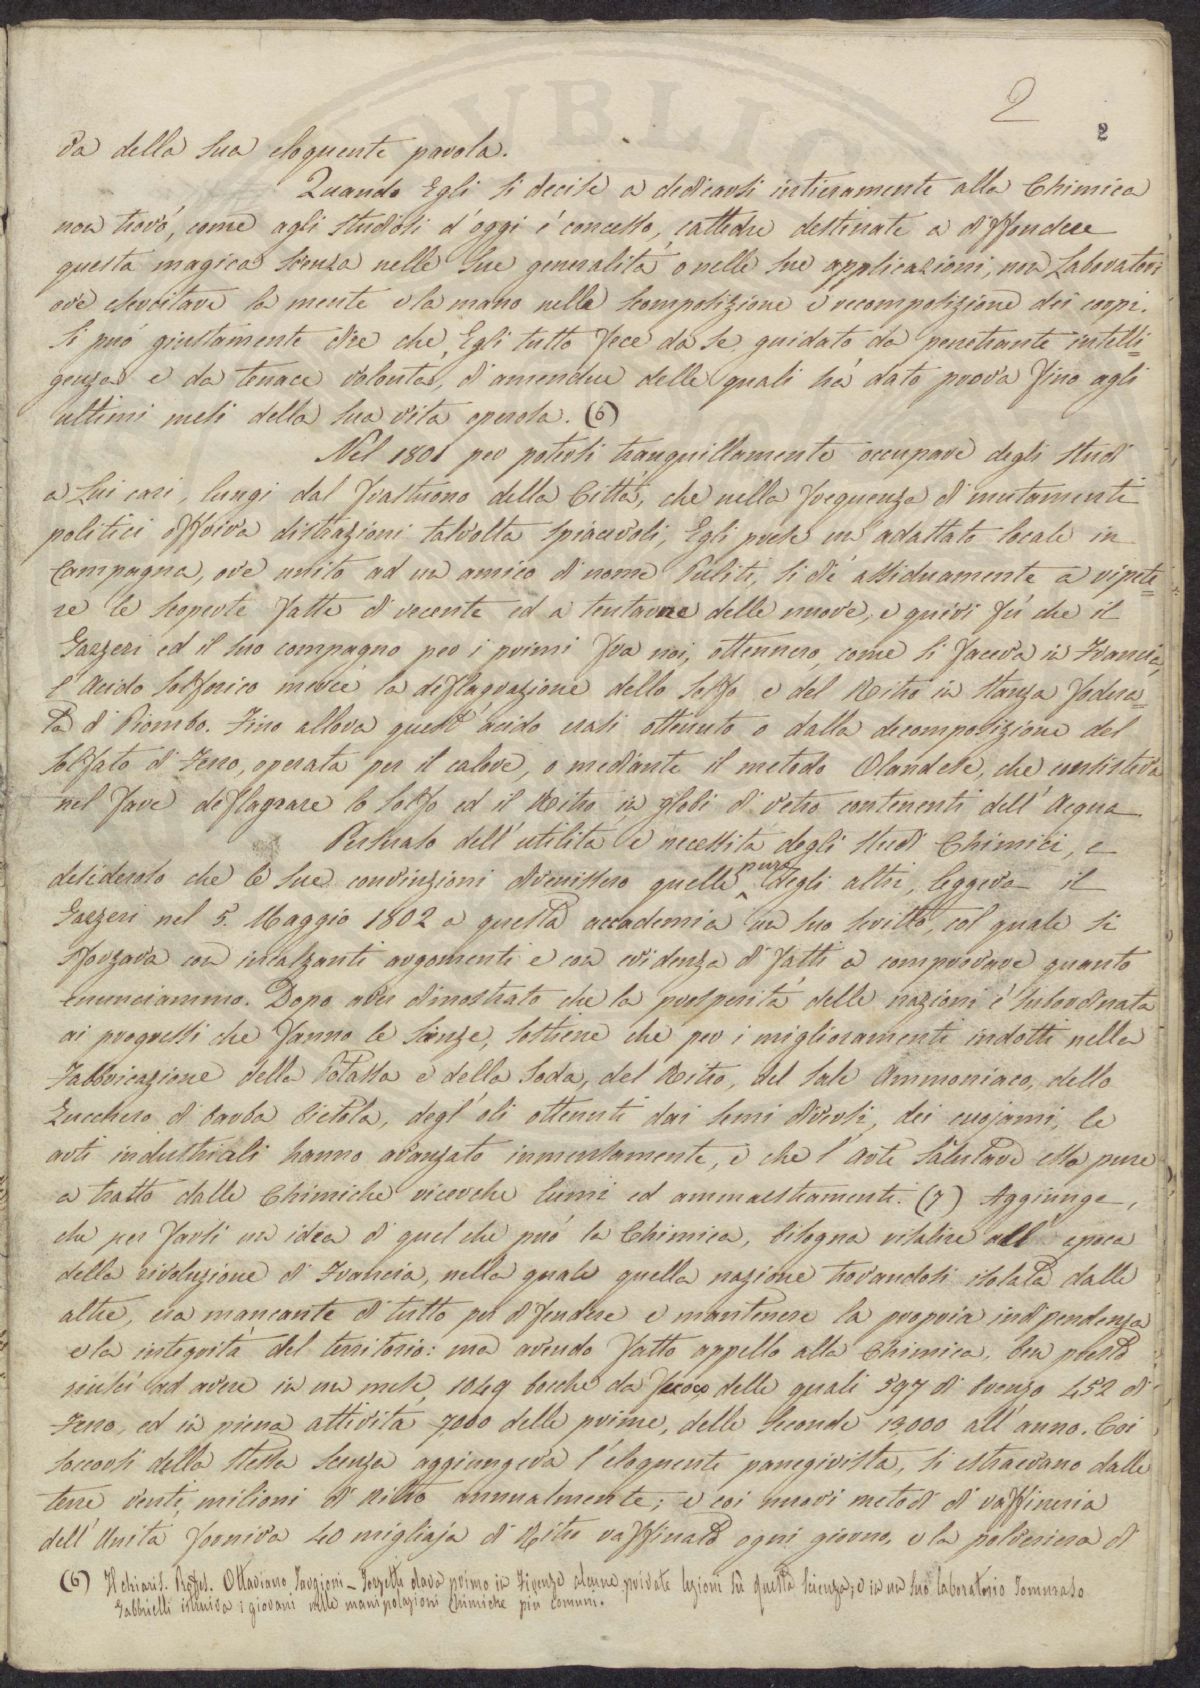 2
2
da della sua eloquente parola.
Quando Egli si decise a dedicarsi intieramente alla Chimica
non trovò, come agli studiosi d'oggi è concesso, cattedre destinate a diffondere
questa magica Scienza nelle sue generalità o nelle sue applicazioni, non Laboratori
ove esercitare la mente e la mano nella scomposizione e recomposizione dei corpi.
Si può giustamente dire che Egli tutto fece da se guidato da penetrante intelli=
genza e da tenace volontà, d'amendue delle quali hà dato prova fino agli
ultimi mesi della sua vita operosa. (6)
Nel 1801 per potersi tranquillamente occupare degli studi
a Lui cari, lungi dal frastuono della Città, che nella frequenza di mutamenti
politici offriva distrazioni talvolta spiacevoli, Egli prese un adattato locale in
Campagna, ove unito ad un amico di nome Puliti, si diè assiduamente a ripete=
re le scoperte fatte di recente ed a tentarne delle nuove, e quivi fù che il
Gazzeri ed il suo compagno per i primi fra noi, ottennero, come si faceva in Francia,
l'Acido Solforico mercè la deflagrazione dello Solfo e del Nitro in stanza fodera=
ta di Piombo. Fino allora quest'acido erasi ottenuto o dalla decomposizione del
Solfato di Ferro, operata per il calore, o mediante il metodo Olandese, che consisteva
nel fare deflagrare lo Solfo ed il Nitro in globi di vetro contenenti dell'Acqua
Persuaso dell'utilità e necessità degli studi Chimici, e
desideroso che le sue convinzioni divenissero quelle pure degli altri, leggeva il
Gazzeri nel 5. Maggio 1802 a questa accademia un suo scritto, col quale si
sforzava con incalzanti argomenti e con evidenza di fatti a comprovare quanto
enunciammo. Dopo aver dimostrato che la prosperità delle nazioni è subordinata
ai progressi che fanno le Scienze, sostiene che per i miglioramenti indotti nella
Fabbricazione della Potassa e della Soda, del Nitro, del Sale Ammoniaco, dello
Zucchero di barba bietola, degl'oli ottenuti dai semi diversi, dei cuojami, le
arti industriali hanno avanzato immensamente, e che l'arte Salutare essa pure
a tratto dalle Chimiche ricerche lumi ed ammaestramenti. (7) Aggiunge,
che per farsi un idea di quel che può la Chimica, bisogna risalire all'epoca
della rivoluzione di Francia, nella quale quella nazione trovandosi isolata dalle
altre, era mancante di tutto per difendere e mantenere la propria indipendenza
e la integrità del territorio: ma avendo fatto appello alla Chimica, ben presto
riuscì ad avere in un mese 1049 bocche da fuoco, delle quali 597 di bronzo 452 di
Ferro, ed in piena attività 7000 delle prime, delle seconde 13,000 all'anno. Coi
soccorsi della stessa Scenza aggiungeva l'eloquente panegirista, si estraevano dalle
terre venti milioni di Nitro annualmente; e coi nuovi metodi di raffineria
dell'Unità forniva 40 migliaja di Nitro raffinato ogni giorno, e la polveriera di
(6) Il chiaris. Profes. Ottaviano Targioni-Tozzetti dava primo in Firenze alcune private lezioni su questa Scienza; e in un suo laboratorio Tommaso
Gabbrielli istruiva i giovani nelle manipolazioni Chimiche più comuni.